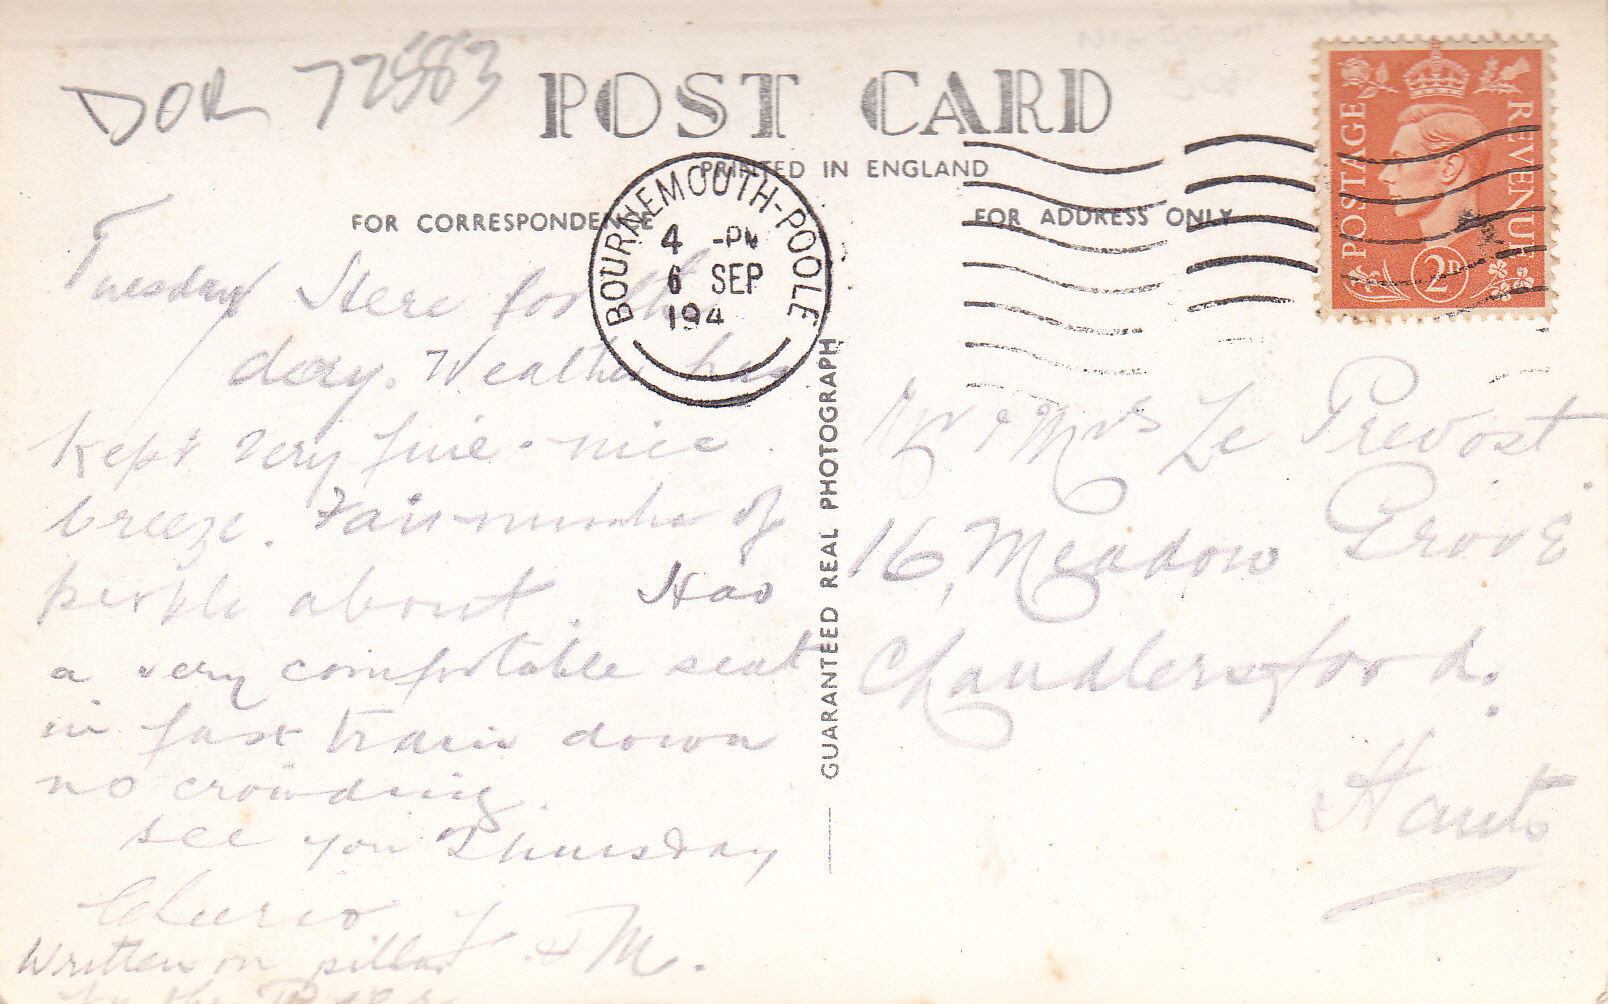 DOR 72583
POST CARD
PRINTED IN ENGLAND
FOR CORRESPONDENCE
FOR ADDRESS ONLY
BOURNEMOUTH-POOLE
4 -PM
6 SEP
194
POSTAGE
REVENUE
2D
GUARANTEED REAL PHOTOGRAPH
Tuesday Here for the
day. Weather has
kept very fine - nice
breeze. Fair number of
people about. Has
a very comfortable seat
in fast train down
no crowding.
See you Thursday
Cheerio
F & M.
Written on pillar
by the
Mr & Mrs Le Prevost
16, Meadow Grove
Chandlersford.
Hants